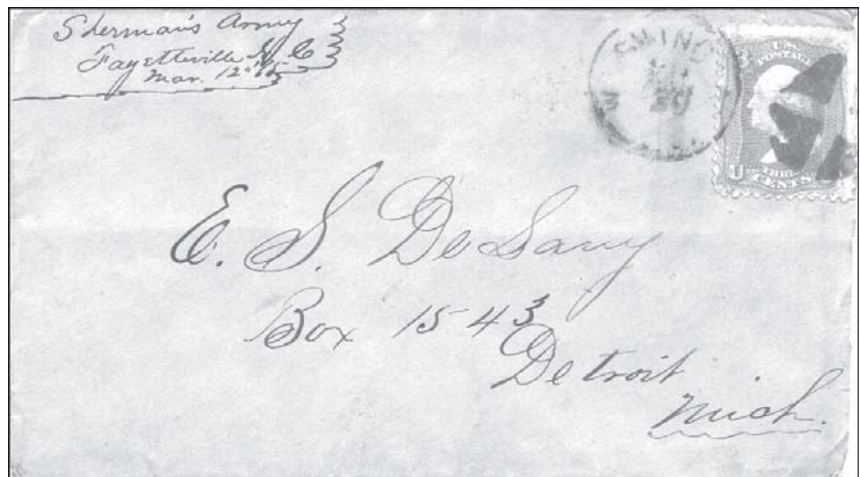 Sherman's Army
Fayetteville N.C
Mar. 12th 65
U.S.
POSTAGE
3
U CENTS
E. S. DeLany
Box 1543
Detroit
Mich.